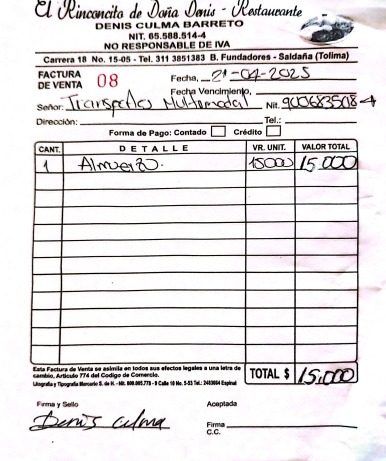 El Rinconcito de Doña Denis - Restaurante
DENIS CULMA BARRETO
NIT. 65.588.514-4
NO RESPONSABLE DE IVA
Carrera 18 No. 15-05 - Tel. 311 3851383 B. Fundadores - Saldaña (Tolima)
FACTURA DE VENTA 08
Fecha, 21-04-2025
Fecha Vencimiento,
Señor: Transportes Multimodal Nit. 900683508-4
Dirección: Tel.:
Forma de Pago: Contado Crédito
CANT. DETALLE VR. UNIT. VALOR TOTAL
1 Almuerzo. 15000 15.000
Esta Factura de Venta se asimila en todos sus efectos legales a una letra de
cambio, Artículo 774 del Codigo de Comercio.
Litografía y Tipografía Mercurio S. de H. - Nit. 809.005.778 - 9 Calle 10 No. 5-53 Tel.: Espinal
TOTAL $ 15.000
Firma y Sello Aceptada
Denis Culma Firma
C.C.